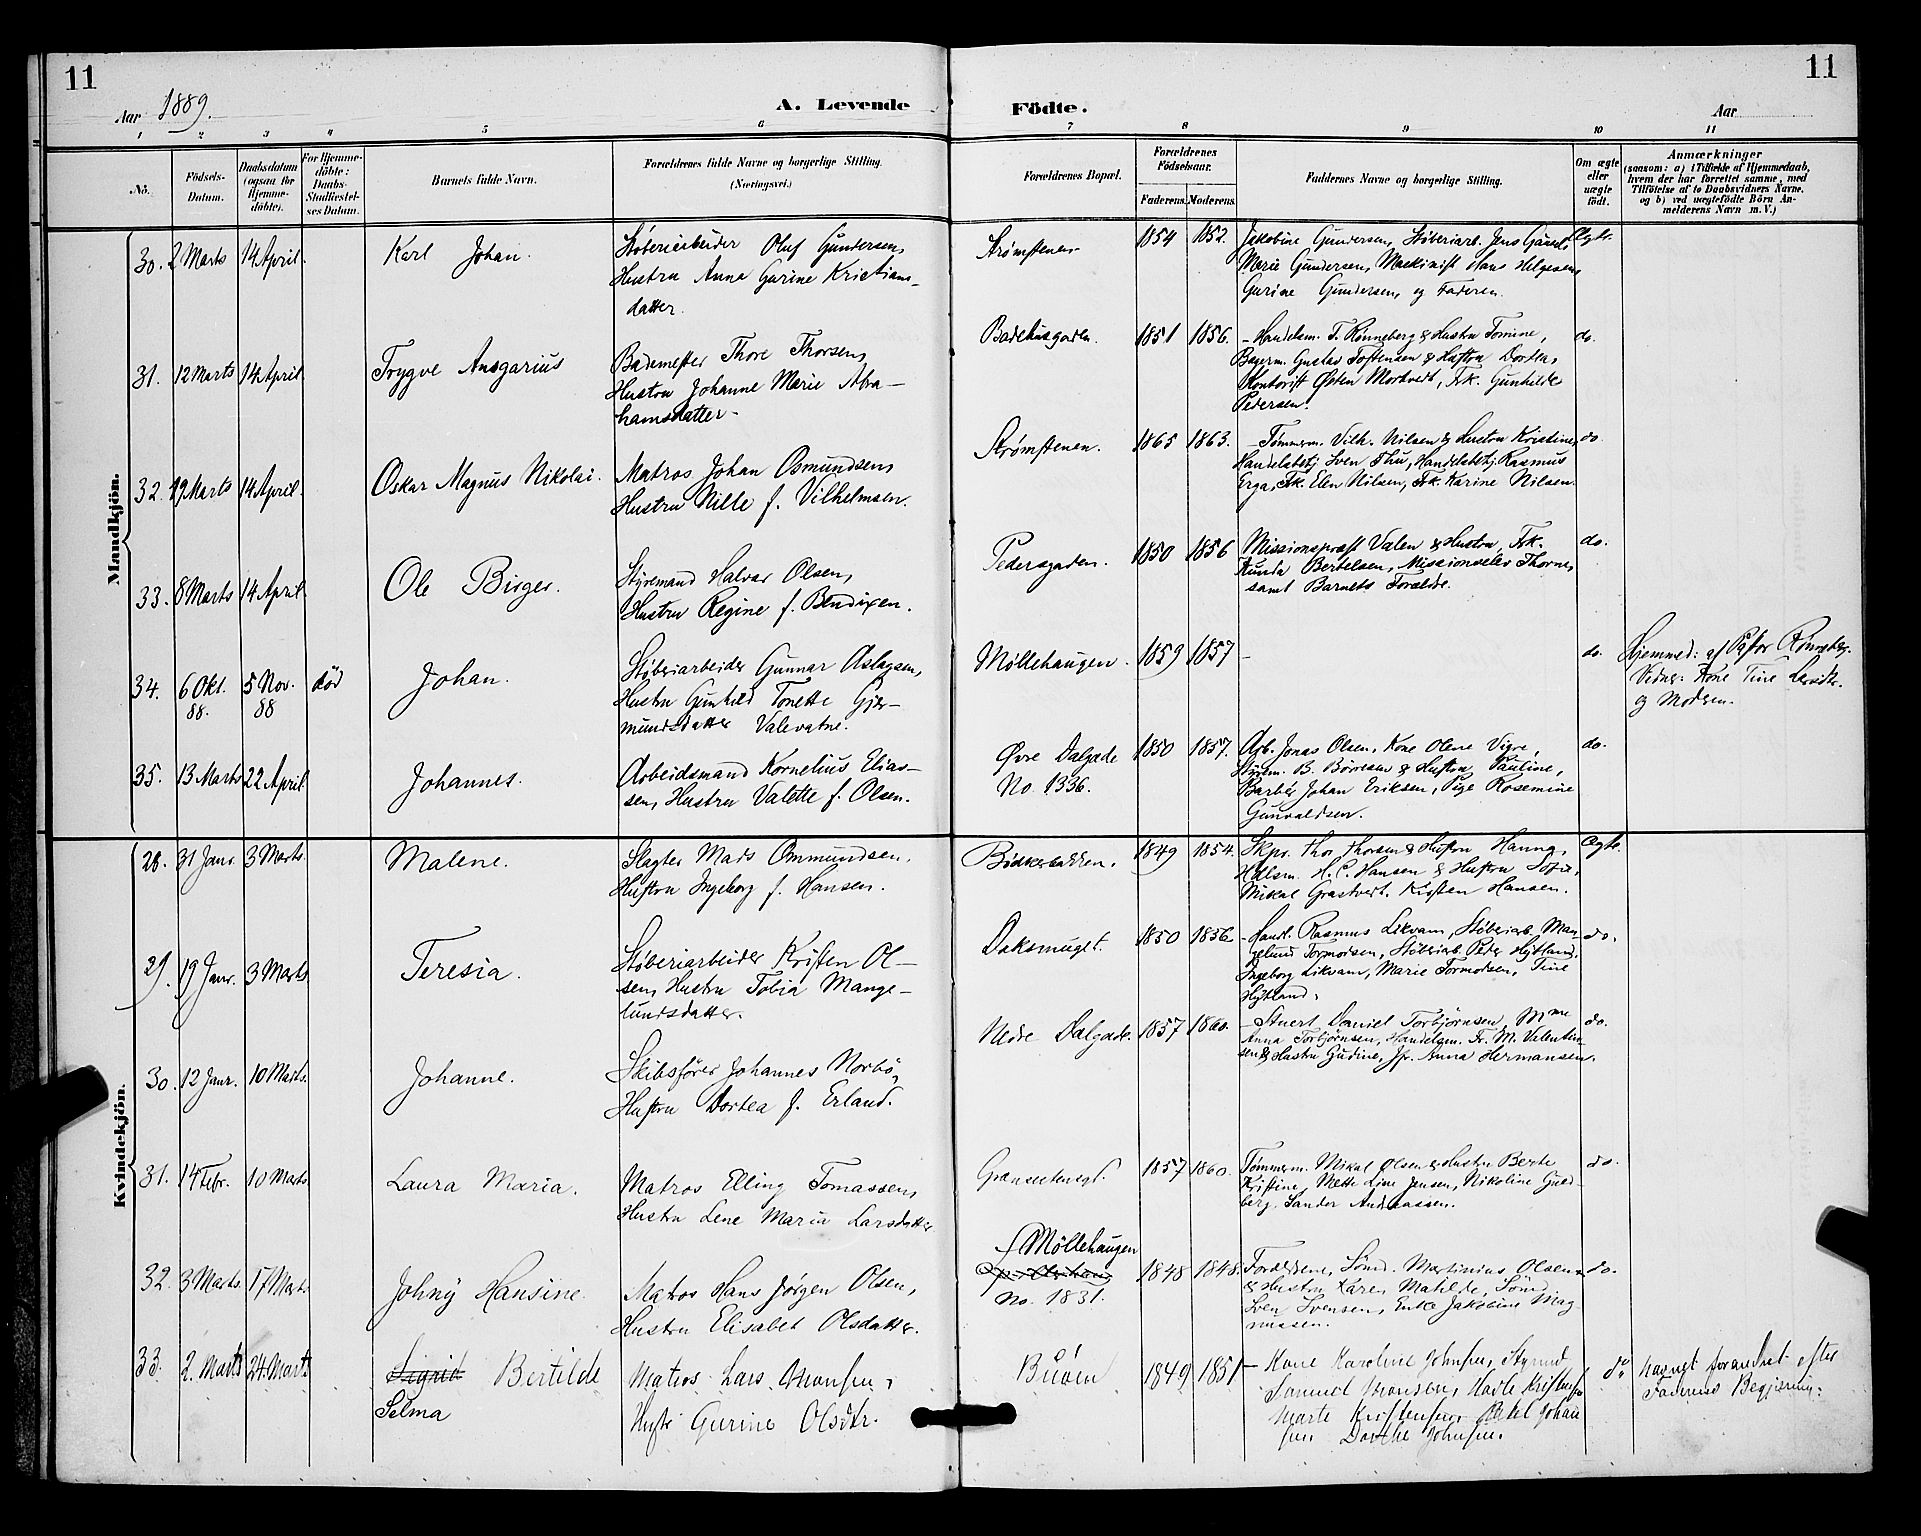 11
11
Aar 1889.
A. Levende
Födte.
Aar
1 2 3 4 5 6 7 8 9 10 11
No.
Födsels-
Datum.
Daabsdatum
(ogsaa for
Hjemme-
döbte).
For Hjemme-
döbte:
Daabs-
Stadfæstel-
ses Datum.
Barnets fulde Navn.
Forældrenes fulde Navne og borgerlige Stilling.
(Næringsvei.)
Forældrenes Bopæl.
Forældrenes
Födselsaar.
Faderens.
Moderens.
Faddernes Navne og borgerlige Stilling.
Om ægte
eller
uægte
født.
Anmærkninger
(saasom: a) i Tilfælde af Hjemmedaab,
hvem der har forrettet samme, med
Tilföielse af to Daabsvidners Navne,
og b) ved uægtefödte Börn An-
melderens Navn m. V.)
Mandkjön.
30. 2 Marts 14 April. Karl Johan.
Støberiarbeider Oluf Gundersen,
Hustru Anna Gurine Kristians-
datter.
Strømstenen 1854 1852.
Jakobine Gundersen, Støberiarb. Jens
Marie Gundersen, Maskinist Hans Helgesen,
Gurine Gundersen, og Faderen.
Ægte.
31. 12 Marts 14 April Trygve Ansgarius
Bademester Thore Thorsen,
Hustru Johanne Marie Abra-
hamsdatter.
Badehusgaden 1851 1856.
Handelsm. T. Rønneberg & Hustru Tomine,
Bagerm. Gustav Tostensen & Hustru Dortea,
Kontorist Østen Mortvedt, Frk. Gunhilde
Pedersen.
do.
32. 19 Marts 14 April. Oskar Magnus Nikolai.
Matros Johan Osmundsen,
Hustru Nille f. Vilhelmsen.
Strømstenen. 1865 1863.
Tømmerm. Vilh. Nilsen & Hustru Kristine,
Handelsbetj. Sven Thu, Handelsbetj. Rasmus
Erga, Frk. Elen Nilsen, Frk. Karine Nilsen.
do.
33. 8 Marts 14 April Ole Birger.
Styrmand Halvar Olsen,
Hustru Regine f. Bendixen.
Pedersgaden. 1850 1856
Missionsprest Valen & Hustru, Frk.
Kunda Bertelsen, Missionselev Thorne,
samt Barnets Forældre.
do.
34. 6 Okt. 88. 5 Nov. 88 død Johan.
Støberiarbeider Gunnar Aslagsen,
Hustru Gunhild Tonette Gjer-
mundsdatter Valevatne.
Møllehaugen. 1859 1857
do.
Hjemmed: af Pastor
Vidner: Kone Tine
og Moderen.
35. 13 Marts 22 April Johannes.
Arbeidsmand Kornelius Elias-
sen, Hustru Valette f. Olsen.
Øvre Dalgade
No. 1336.
1850 1857.
Arb. Jonas Olsen, Kone Olene Vigre,
Styrm. B. Børresen & Hustru Pauline,
Barbér Johan Eriksen, Pige Rosemine
Gunvaldsen.
do.
Kvindekjön.
28. 31 Janr. 3 Marts. Malene.
Slagter Mads Ommundsen,
Hustru Ingeborg f. Hansen.
Bødkerbakken. 1849 1854.
Skpr. Thor Thorsen & Hustru Hanna,
Hdlsm. H. C. Hansen & Hustru Sofie,
Mikal Grastvert. Kirsten Hansen.
Ægte.
29. 19 Janr. 3 Marts Teresia.
Støberiarbeider Kristen Ol-
sen, Hustru Tobia Mange-
lundsdatter.
Daksmuget. 1850 1856
Handl. Rasmus Likvam, Støberiarb. Man-
gelund Tormodsen, Støberiarb. Peder Hytland,
Ingeborg Likvam, Marie Tormodsen, Tine
Hytland.
do.
30. 12 Janr. 10 Marts. Johanne.
Skibsfører Johannes Norbø,
Hustru Dortea f. Erland.
Nedre Dalgade. 1857 1860.
Stuert Daniel Torbjørnsen, Mme
Anna Torbjørnsen, Handelsm. Fr. M. Valentin-
sen & Hustru Gudine, Jp. Anna Hermansen.
do.
31. 14 Febr. 10 Marts Laura Maria.
Matros Elling Tomassen,
Hustru Lene Maria Larsdatter
1857 1860.
Tømmerm. Mikal Olsen & Hustru Berte
Kristine, Mette Line Jensen, Nikoline Guld-
berg, Sander Andreassen.
do.
32. 3 Marts. 17 Marts Johny Hansine.
Matros Hans Jørgen Olsen,
Hustru Elisabet Olsdatter.
Möllehaugen
No. 1831.
1848 1848.
Forældrene, Sömd. Martinius Olsen
& Hustru Karen Matilde, Sömd
Sven Svensen, Enke Jakobine Mag-
nussen.
do.
33. 2. Marts 24. Marts Sigrid Bertilde
Selma
Matros Lars Monsen,
Hustr. Gurine Olsdtr.
Buøen 1849 1851
Kone Karoline Johnsen, Styrmd
Samuel Monsen,
Marte Kristensen, Rakel Johan
sen Dorthe Johnsen.
do
Navnet forandret efter
Faderens Begjæring.